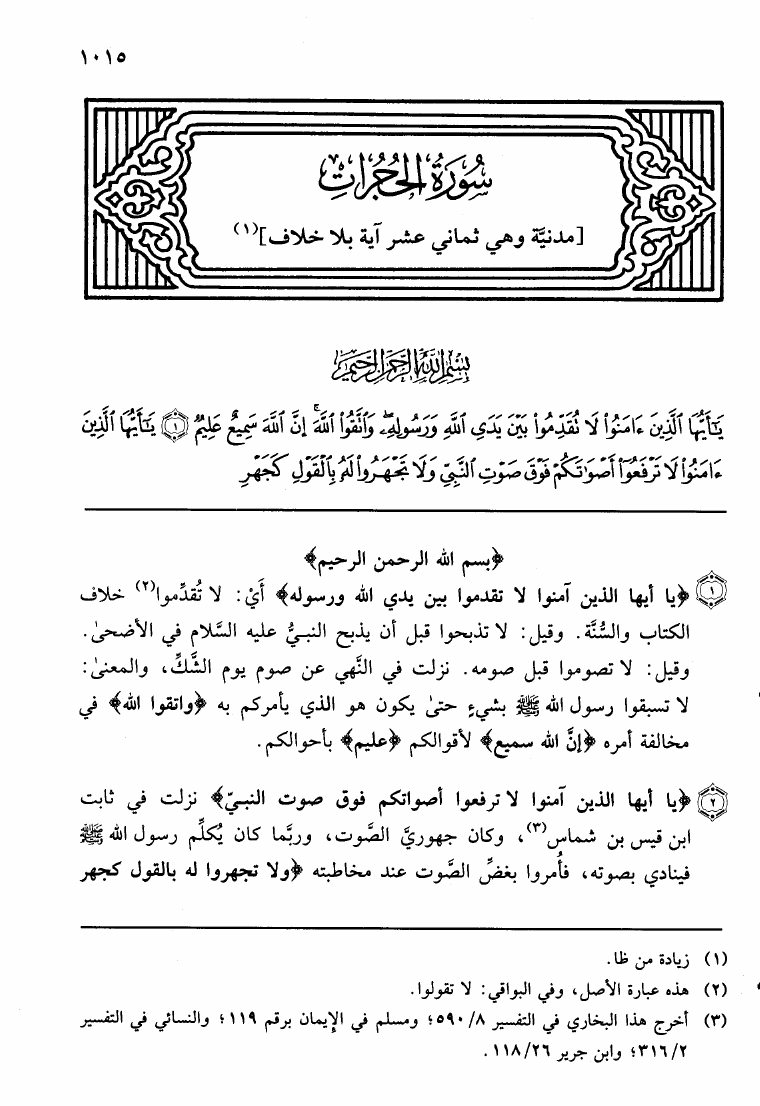 ١٠١٥
سُورَةُ الحُجُرَاتِ
[مدنيَّة وهي ثماني عشر آية بلا خلاف](١)
بِسْمِ اللَّهِ الرَّحْمَنِ الرَّحِيمِ
يَٰٓأَيُّهَا ٱلَّذِينَ ءَامَنُوا۟ لَا تُقَدِّمُوا۟ بَيْنَ يَدَىِ ٱللَّهِ وَرَسُولِهِۦ ۖ وَٱتَّقُوا۟ ٱللَّهَ ۚ إِنَّ ٱللَّهَ سَمِيعٌ عَلِيمٌ ١ يَٰٓأَيُّهَا ٱلَّذِينَ
ءَامَنُوا۟ لَا تَرْفَعُوٓا۟ أَصْوَٰتَكُمْ فَوْقَ صَوْتِ ٱلنَّبِىِّ وَلَا تَجْهَرُوا۟ لَهُۥ بِٱلْقَوْلِ كَجَهْرِ
﴿بسم الله الرحمن الرحيم﴾
١ ﴿يا أيها الذين آمنوا لا تقدموا بين يدي الله ورسوله﴾ أَيْ: لا تُقدِّموا(٢) خلاف
الكتاب والسُّنَّة. وقيل: لا تذبحوا قبل أن يذبح النبيُّ عليه السَّلام في الأضحىٰ.
وقيل: لا تصوموا قبل صومه. نزلت في النَّهي عن صوم يوم الشَّكِّ، والمعنىٰ:
لا تسبقوا رسول الله ﷺ بشيءٍ حتىٰ يكون هو الذي يأمركم به ﴿واتقوا الله﴾ في
مخالفة أمره ﴿إنَّ الله سميع﴾ لأقوالكم ﴿عليم﴾ بأحوالكم.
٢ ﴿يا أيها الذين آمنوا لا ترفعوا أصواتكم فوق صوت النبيّ﴾ نزلت في ثابت
ابن قيس بن شماس(٣)، وكان جهوريَّ الصَّوت، وربَّما كان يُكلِّم رسول الله ﷺ
فينادي بصوته، فأُمروا بغضِّ الصَّوت عند مخاطبته ﴿ولا تجهروا له بالقول كجهر
(١) زيادة من ظا.
(٢) هذه عبارة الأصل، وفي البواقي: لا تقولوا.
(٣) أخرج هذا البخاري في التفسير ٨/ ٥٩٠؛ ومسلم في الإيمان برقم ١١٩؛ والنسائي في التفسير
٢/ ٣١٦؛ وابن جرير ٢٦/ ١١٨.